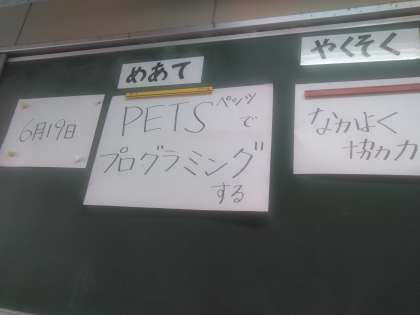 6月19日
めあて
PETSペッツで
プログラミング
する
やくそく
なかよく
協力